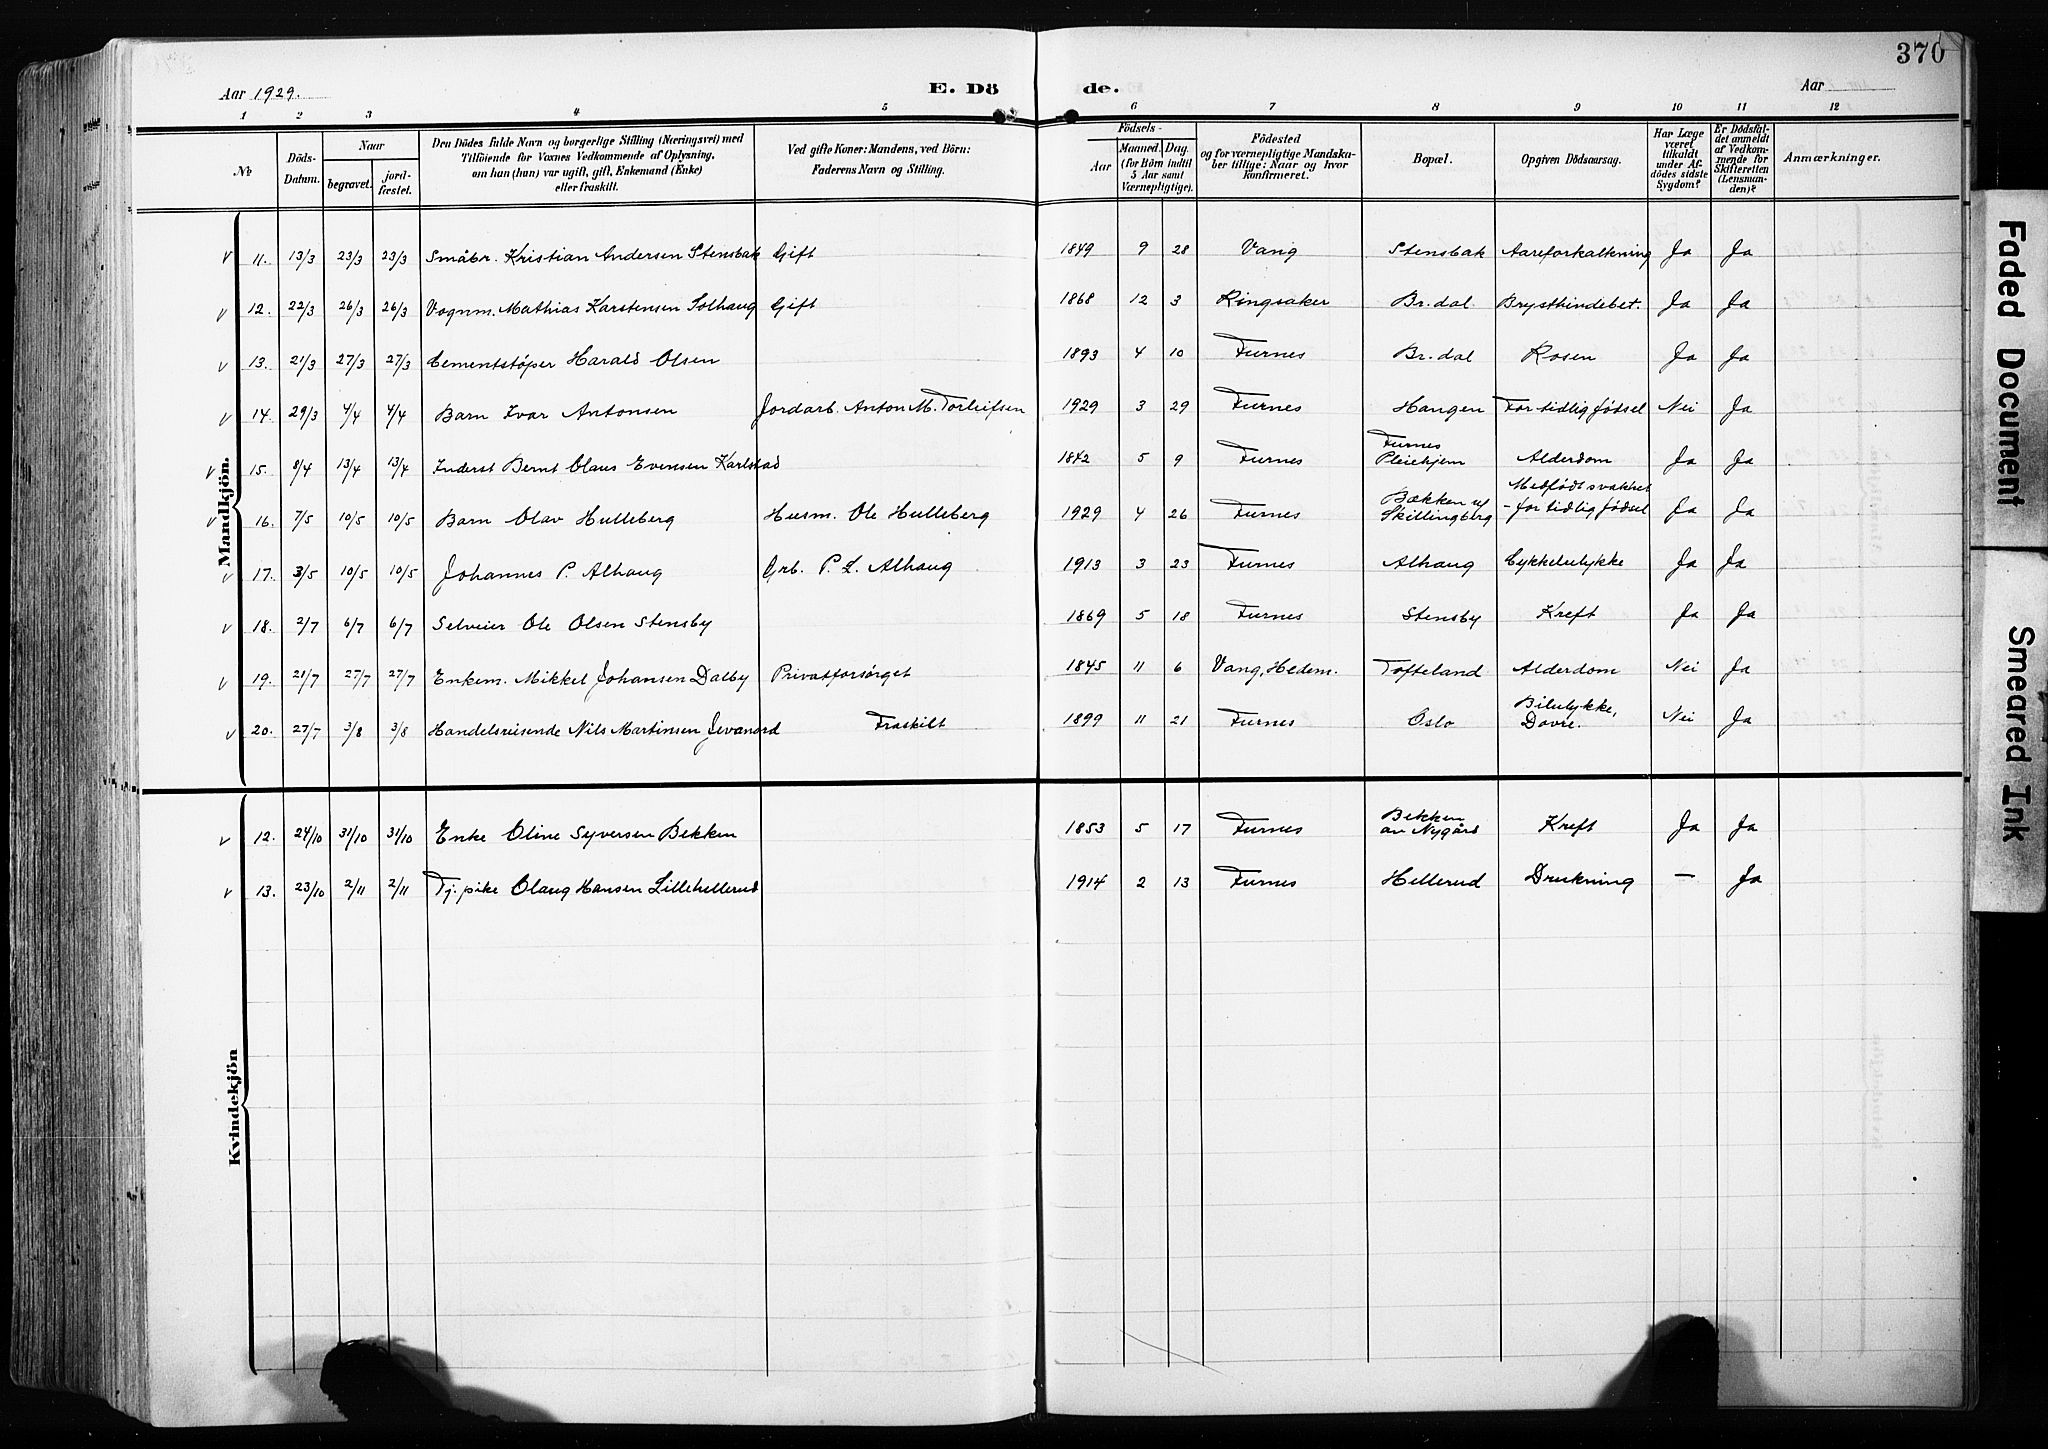 370
Aar 1929.
E. Dö de.
Aar
1 2 3 4 5 6 7 8 9 10 11 12
№
Döds-Datum.
Naar
begravet.
jord-fæstet.
Den Dödes fulde Navn og borgerlige Stilling (Næringsvei) med
Tilföiende for Voxnes Vedkommende af Oplysning,
om han (hun) var ugift, gift, Enkemand (Enke)
eller fraskilt.
Ved gifte Koner: Mandens, ved Börn:
Faderens Navn og Stilling.
Födsels-
Aar
Maaned. Dag.
(for Börn indtil
5 Aar samt
Værnepligtige).
Födested
og for værnepligtige Mandska-
ber tillige: Naar og hvor
konfirmeret.
Bopæl.
Opgiven Dödsaarsag.
Har Læge
været
tilkaldt
under Af-
dödes sidste
Sygdom?
Er Dödsfal-
det anmeldt
af Vedkom-
mende for
Skifteretten
(Lensman-
den)?
Anmærkninger.
Mandkjön.
v 11. 13/3 23/3 23/3 Småbr. Kristian Andersen Stensbak Gift 1849 9 28 Vang Stensbak Aareforkalkning Ja Ja
v 12. 22/3 26/3 26/3 Vognm. Mathias Karstensen Solhaug Gift 1868 12 3 Ringsaker Br.dal. Brysthindebet. Ja Ja
v 13. 21/3 27/3 27/3 Cementstøper Harald Olsen 1893 4 10 Furnes Br.dal Rosen Ja Ja
v 14. 29/3 4/4 4/4 Barn Ivar Antonsen Jordarb. Anton M. Torleifsen 1929 3 29 Furnes Haugen For tidlig fødsel Nei Ja
v 15. 8/4 13/4 13/4 Inderst Bernt Olaus Evensen Karlstad 1842 5 9 Furnes Furnes Pleiehjem Alderdom Ja Ja
v 16. 7/5 10/5 10/5 Barn Olav Hulleberg Husm. Ole Hulleberg 1929 4 26 Furnes Bækken u/ Skillingberg Medfødt svakhet - for tidlig fødsel Ja Ja
v 17. 3/5 10/5 10/5 Johannes P. Alhaug Grb. P. L. Alhaug 1913 3 23 Furnes Alhaug Cykkelulykke Ja Ja
v 18. 2/7 6/7 6/7 Selveier Ole Olsen Stensby 1869 5 18 Furnes Stensby Kreft Ja Ja
v 19. 21/7 27/7 27/7 Enkem. Mikkel Johansen Dalby Privatforsørget 1845 11 6 Vang, Hedem. Tofteland Alderdom Nei Ja
v 20. 27/7 3/8 3/8 Handelsreisende Nils Martinsen Jevanord Fraskilt 1899 11 21 Furnes Oslo Bilulykke, Dovre. Nei Ja
Kvindekjön
v 12. 24/10 31/10 31/10 Enke Oline Syversen Bekken 1853 5 17 Furnes Bekken av Nygård Kreft Ja Ja
v 13. 23/10 2/11 2/11 Tj. pike Olaug Hansen Lillehellerud 1914 2 13 Furnes Hellerud Drukning — Ja
Faded Document
Smeared Ink